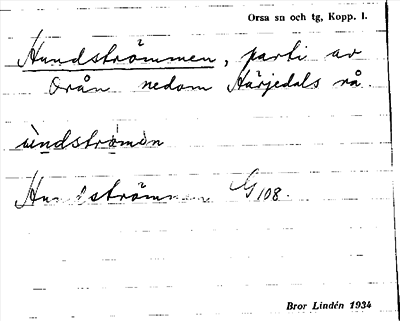 Orsa sn och tg, Kopp. l.
Hundströmmen, parti av
Orån nedom Härjedals rå.
G 108.
Bror Lindén 1934